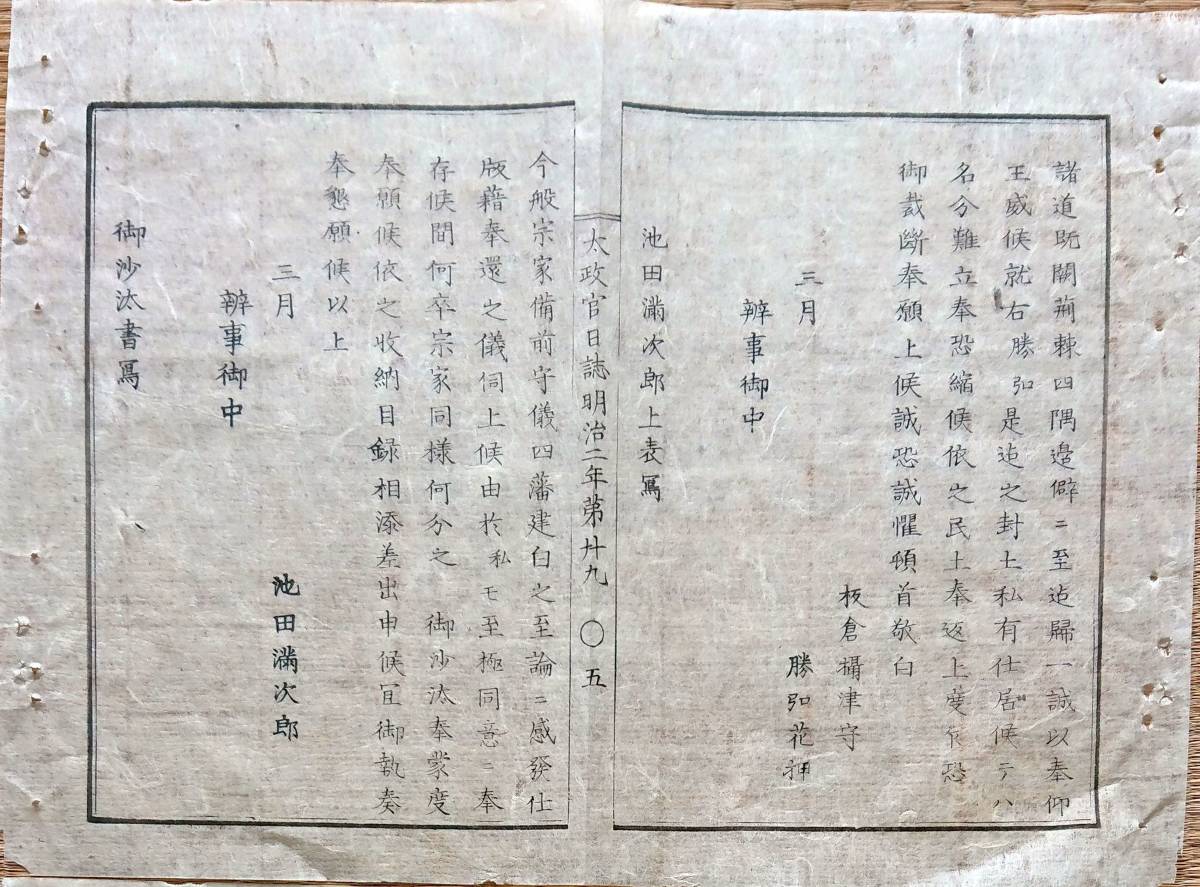 諸道既闢荊棘四隅邉僻ニ至迠歸一誠以奉仰
王威候就右勝弘是迠之封土私有仕居候テハ
名分難立奉恐縮候依之民土奉返上度奉恐
御裁斷奉願上候誠恐誠懼頓首敬白
板倉攝津守
三月 勝弘花押
辨事御中
池田滿次郎上表寫
太政官日誌明治二年第廿九 〇 五
今般宗家備前守儀四藩建白之至論ニ感發仕
版藉奉還之儀伺上候由於私モ至極同意ニ奉
存候間何卒宗家同様何分之 御沙汰奉蒙度
奉願候依之收納目録相添差出申候冝御執奏
奉懇願候以上
三月 池田滿次郎
辨事御中
御沙汰書寫